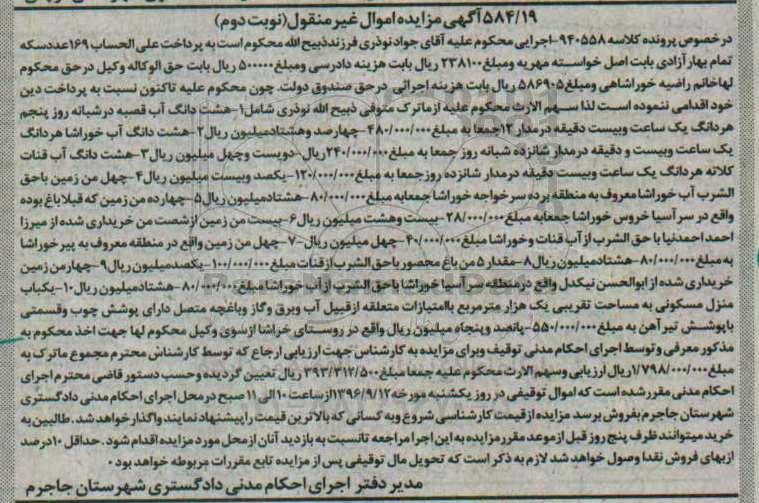 ۵۸۴/۱۹آگهی مزایده اموال غیر منقول(نوبت دوم)
در خصوص پرونده کلاسه ۹۴۰۵۵۸-اجرایی محکوم علیه آقای جواد نوذری فرزند ذبیح الله محکوم است به پرداخت علی الحساب ۱۶۹عدد سکه
تمام بهار آزادی بابت اصل خواسته مهریه ومبلغ ۲۳۸۱۰۰ریال بابت هزینه دادرسی ومبلغ ۵۰۰۰۰۰ ریال بابت حق الوکاله وکیل درحق محکوم
لهاخانم راضیه خوراشاهی ومبلغ ۵۸۶۹۰۵ ریال بابت هزینه اجرائی درحق صندوق دولت. چون محکوم علیه تاکنون نسبت به پرداخت دین
خود اقدامی ننموده است لذا سهم الارث محکوم علیه ازماترک متوفی ذبیح الله نوذری شامل۱-هشت دانگ آب قصبه درشبانه روز پنجم
هر دانگ یک ساعت وبیست دقیقه درمدار ۱۲جمعا به مبلغ ۴۸۰/۰۰۰/۰۰۰-چهارصد وهشتادمیلیون ریال۲-هشت دانگ آب خوراشا هردانگ
یک ساعت وبیست و دقیقه درمدار شانزده شبانه روز جمعا به مبلغ ۲۴۰/۰۰۰/۰۰۰ریال-دویست وچهل میلیون ریال۳-هشت دانگ آب قنات
کلاته هردانگ یک ساعت وبیست دقیقه درمدار شانزده روز جمعا به مبلغ ۱۲۰/۰۰۰/۰۰۰-یکصد وبیست میلیون ریال۴-چهل من زمین باحق
الشرب آب خوراشا معروف به منطقه برده سر خواجه خوراشا جمعابه مبلغ ۸۰/۰۰۰/۰۰۰-هشتادمیلیون ریال۵-چهارده من زمین که قبلا باغ بوده
واقع در سر آسیا خروس خوراشا جمعابه مبلغ ۲۸/۰۰۰/۰۰۰-بیست وهشت میلیون ریال۶-بیست من زمین ازشصت من خریداری شده از میرزا
احمد احمدنیا با حق الشرب از آب قنات وخوراشا مبلغ ۴۰/۰۰۰/۰۰۰-چهل میلیون ریال-۷-چهل من زمین واقع در منطقه معروف به پیر خوراشا
به مبلغ ۸۰/۰۰۰/۰۰۰-هشتادمیلیون ریال۸-مقدار۵ من باغ محصور باحق الشرب ازقنات مبلغ ۱۰۰/۰۰۰/۰۰۰-یکصدمیلیون ریال۹-چهارمن زمین
خریداری شده از ابوالحسن نیکدل واقع درمنطقه سر آسیا خوراشا باحق الشرب از آب خوراشا مبلغ ۸۰/۰۰۰/۰۰۰-هشتادمیلیون ریال۱۰-یکباب
منزل مسکونی به مساحت تقریبی یک هزار مترمربع باامتیازات متعلقه ازقبیل آب وبرق وگاز وباغچه متصل دارای پوشش چوب وقسمتی
باپوشش تیر آهن به مبلغ ۵۵۰/۰۰۰/۰۰۰-پانصد وپنجاه میلیون ریال واقع در روستای خراشا ازسوی وکیل محکوم لها جهت اخذ محکوم به
مذکور معرفی وتوسط اجرای احکام مدنی توقیف وبرای مزایده به کارشناس جهت ارزیابی ارجاع که توسط کارشناس محترم مجموع ماترک به
مبلغ ۱/۷۹۸/۰۰۰/۰۰۰ریال ارزیابی وسهم الارث محکوم علیه جمعا مبلغ ۳۹۳/۳۱۲/۵۰۰ ریال تعیین گردیده وحسب دستور قاضی محترم اجرای
احکام مدنی مقرر شده است که اموال توقیفی در روز یکشنبه مورخه ۱۳۹۶/۹/۱۲ازساعت ۱۰الی ۱۱ صبح در محل اجرای احکام مدنی دادگستری
شهرستان جاجرم بفروش برسد مزایده ازقیمت کارشناسی شروع وبه کسانی که بالاترین قیمت را پیشنهاد نمایند واگذار خواهد شد. طالبین به
خرید میتوانند ظرف پنج روز قبل ازموعد مقرر مزایده به این اجرا مراجعه تانسبت به بازدید آنان از محل مورد مزایده اقدام شود. حداقل ۱۰درصد
ازبهای فروش نقدا وصول خواهد شد لازم به ذکر است که تحویل مال توقیفی پس از مزایده تابع مقررات مربوطه خواهد بود.
مدیر دفتر اجرای احکام مدنی دادگستری شهرستان جاجرم